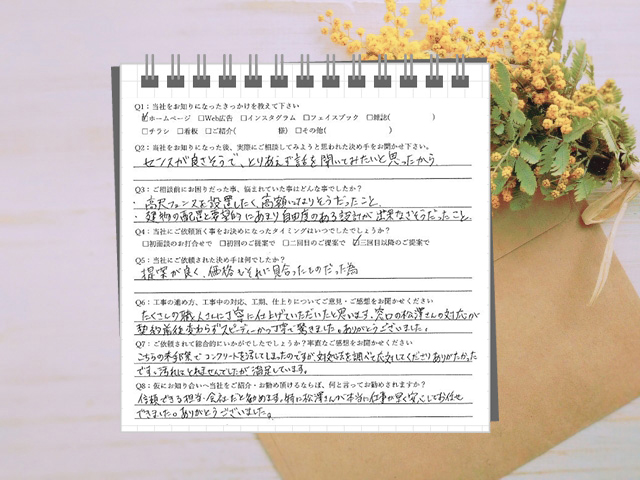 Q1：当社をお知りになったきっかけを教えて下さい
☑ホームページ □Web広告 □インスタグラム □フェイスブック □雑誌( )
□チラシ □看板 □ご紹介( 様) □その他( )
Q2：当社をお知りになった後、実際にご相談してみようと思われた決め手をお聞かせ下さい。
センスが良さそうで、とりあえず話を聞いてみたいと思ったから
Q3：ご相談前にお困りだった事、悩まれていた事はどんな事でしたか？
・高尺フェンスを設置したく、高額になりそうだったこと
・建物の配置と希望的にあまり自由度のある設計が出来なさそうだったこと
Q4：当社にご依頼頂く事をお決めになったタイミングはいつでしたでしょうか？
□初面談のお打合せで □初回のご提案で □二回目のご提案で ☑三回目以降のご提案で
Q5：当社にご依頼された決め手は何でしたか？
提案が良く、価格もそれに見合ったものだった為
Q6：工事の進め方、工事中の対応、工期、仕上りについてご意見・ご感想をお聞かせください
たくさんの職人さんに丁寧に仕上げていただいたと思います。窓口の松澤さんの対応が
契約前後変わらずスピーディーかつ丁寧で驚きました。ありがとうございました。
Q7：ご依頼されて総合的にいかがでしたでしょうか？率直なご感想をお聞かせください
こちらの不手際でコンクリートを汚してしまったのですが、対処法を調べて応対してくださりありがたかった
です。汚れはとれませんでしたが満足しています。
Q8：仮にお知り合いへ当社をご紹介・お勧め頂けるならば、何と言ってお勧めされますか？
信頼できる担当・会社だと勧めます。特に松澤さんが本当に仕事が早く安心してお任せ
できました。ありがとうございました。